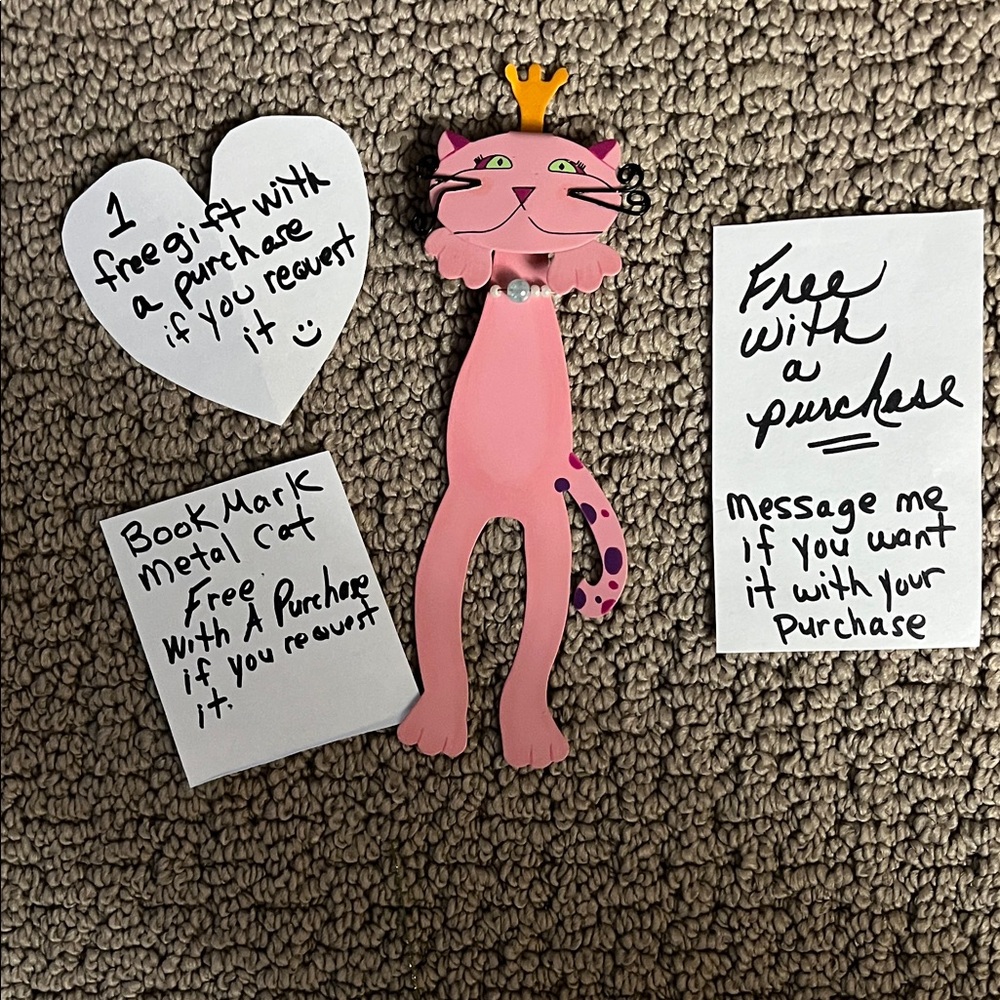 1
free gift with
a purchase
if you request
it :)
Book Mark
Metal Cat
Free
With A Purchase
if you request
it.
Free
with
a
purchase
Message me
if you want
it with your
purchase